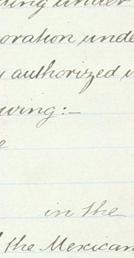 ting under
oration unde
y authorized
owing:—
e
in the
f the Mexican